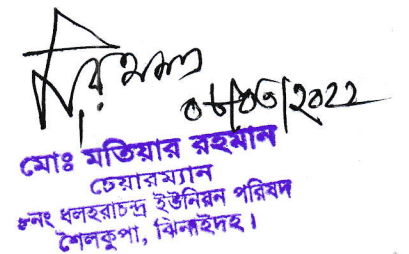 ০৮/০৩/২০২২
মোঃ মতিয়ার রহমান
চেয়ারম্যান
৮নং ধলহরাচন্দ্র ইউনিয়ন পরিষদ
শৈলকুপা, ঝিনাইদহ।